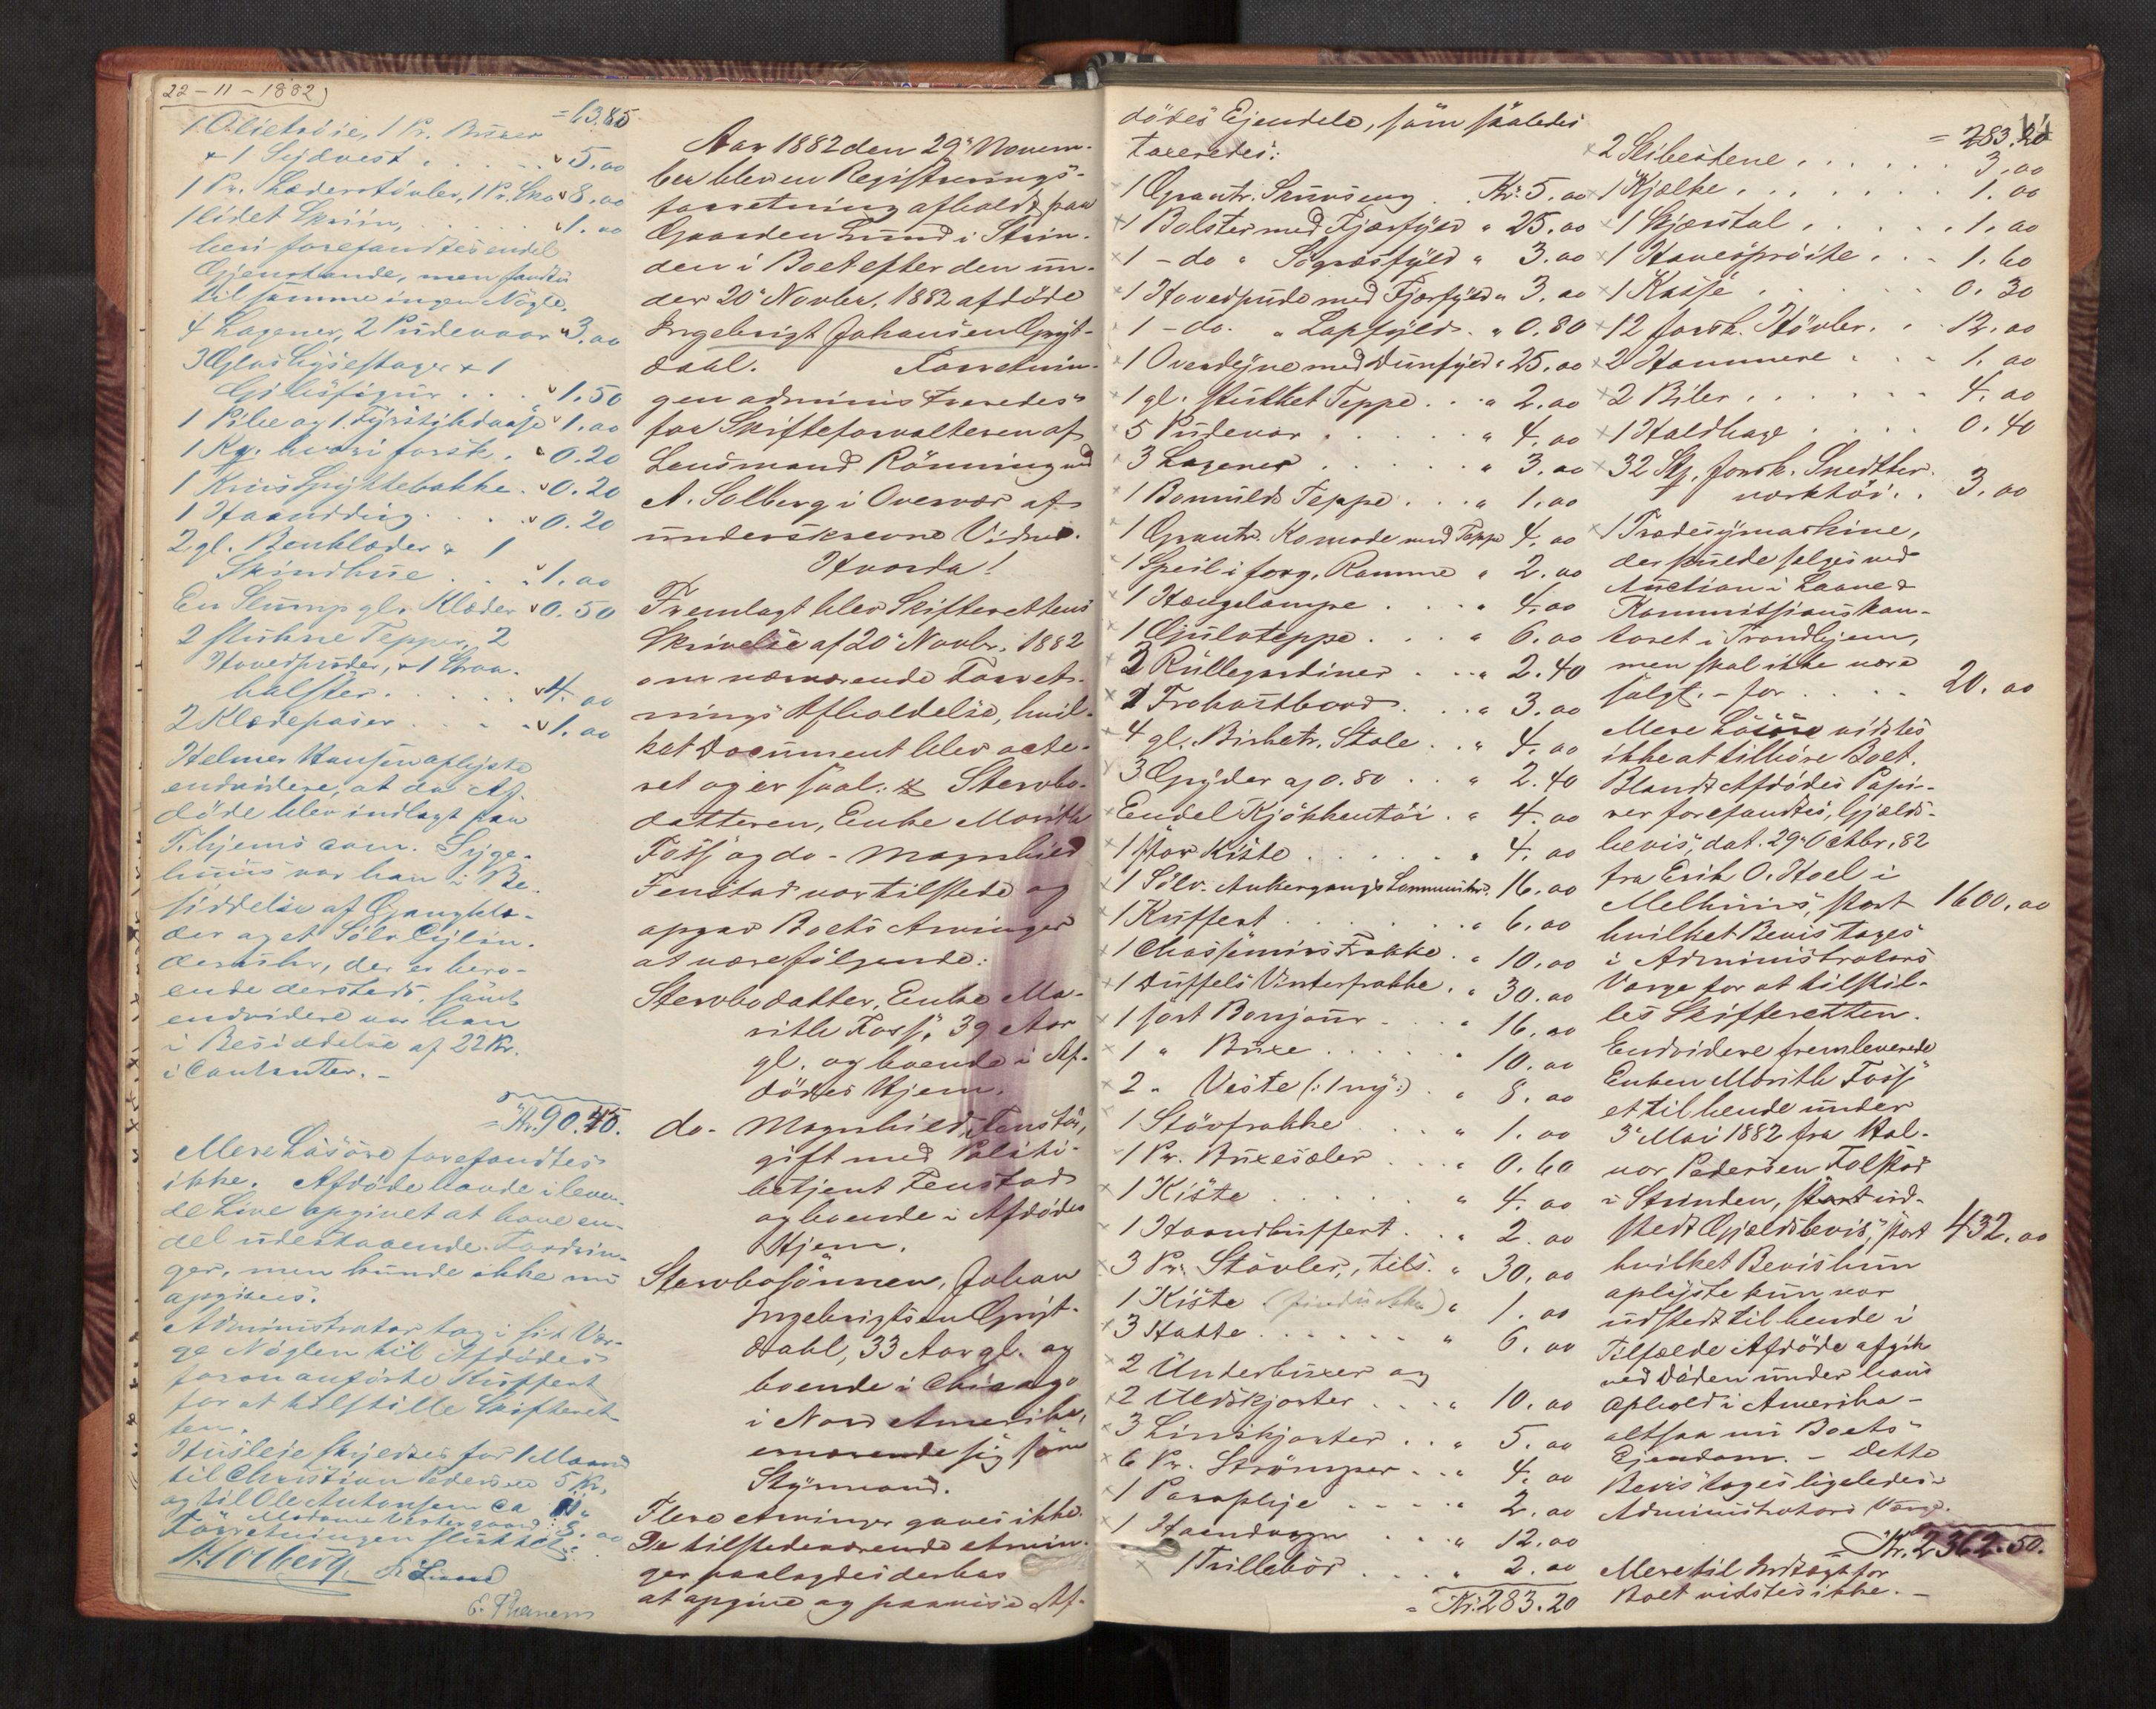 22-11-1882)
= 63.85
1 Olietröie, 1 Pr. Buxer
+ 1 Sydvest . . . . " 5.00
1 Pr. Læderstövler, 1 Pr. Sko " 8.00
1 lidet Skriin, . . . . " 1.00
heri forefandtes endel
Gjenstande, men fandtes
til samme ingen Nögle.
4 Lagener, 2 Pudevaar " 3.00
3 Glas Lysestager & 1
Gibsfigur . . . " 1.50
1 Pibe og 1 Fyrstikdaase " 1.00
1 Kg. hvori forsk. " 0.20
1 Krus Spyttebakke . " 0.20
1 Haand . . . " 0.20
2 gl. Benklæder & 1
Skindhue . . . " 1.00
En Slump gl. Klæder " 0.50
2 stukne Tepper, 2
Hovedpuder, & 1 Straa-
bolster . . . . " 4.00
2 Klædeposer . . . " 1.00
Helmer Hansen oplyste
endvidere, at da Af-
döde blev indlagt paa
T.hjems com. Syge-
huus var han i Be-
siddelse af Gangklæ-
der og et Sölv Cylin-
derur, der er bero-
ende dersteds, samt
endvidere var han
i Besiddelse af 22 Kr.
i Contanter. -
= Kr. 90.45.
Mere Lösöre forefandtes
ikke. Afdöde havde i leven-
de Live opgivet at have en-
del udestaaende Fordrin-
ger, men kunde ikke nu
opgives.
Administrator tog i sin Vær-
ge Nöglen til Afdödes
foran anförte Kuffert
for at tilstille Skifteret-
ten.
Husleie skyldtes for 1 Maaned
til Christian Pedersen 5 Kr.
og til Ole Antonsen ca
Madame Vestergaard
Forretningen sluttet.
A. Solberg.
Aar 1882 den 29de Novem-
ber blev en Registrerings-
forretning afholdt paa
Gaarden Lund i Strin-
den i Boet efter den un-
der 20de Novbr. 1882 afdöde
Ingebrigt Johansen Gryt-
dahl. Forretnin-
gen administreredes
for Skifteforvalteren af
Lensmand Rönning ved
A. Solberg i Overvær af
underskrevne Vidner.
Hvorda!
Fremlagt blev Skifterettens
Skrivelse af 20de Novbr. 1882
om nærværende Forret-
nings Afholdelse, hvil-
ket Document blev acte-
ret og er saal. Stervbo-
datteren, Enke Marith
Foss og do - Magnhild
Fenstad var tilstede og
opgav Boets Arvinger
at være fölgende:
Stervbodatter, Enke Ma-
rith Foss, 39 Aar
gl. og boende i Af-
dödes Hjem.
do - Magnhild Fenstad,
gift med Politi-
betjent Fenstad
og boende i Afdödes
Hjem.
Stervbosönnen, Johan
Ingebrigtsen Gryt-
dahl, 33 Aar gl. og
boende i Chicago
i Nord Amerika,
ernærende sig som
Styrmand.
Flere Arvinger gaves ikke.
De tilstedeværende Arvin-
ger paalagdes derhos
at opgive og paavise Af-
dödes Ejendele, som saaledes
taxeredes:
1 Grantr. Skuvseng . Kr. 5.00
1 Bolster med Fjærfyld " 25.00
1 - do " Sögræsfyld " 3.00
1 Hovedpude med Fjærfyld " 3.00
1 - do. " Lapfyld. " 0.80
1 Overdyne med Dunfyld " 25.00
1 gl. stukket Teppe . . " 2.00
5 Pudevar . . . . " 4.00
3 Lagener . . . . " 3.00
1 Bomulds Teppe . . " 1.00
1 Grantr. Komode med Teppe 4.00
1 Speil i forg. Ramme " 2.00
1 Hængelampe . . . " 4.00
1 Gulvteppe . . . " 6.00
2 Rullegardiner . . " 2.40
1 Frokostbord . . " 3.00
4 gl. Birketr. Stole . . " 4.00
3 Gryder a 0.80 . . " 2.40
Endel Kjökkentöi . " 4.00
1 stor Kiste . . . . " 4.00
1 Sölv Ankergangs Lommeuhr. 16.00
1 Kuffert . . . . " 6.00
1 Chassimirs Frakke . " 10.00
1 Duffels Vinterfrakke . " 30.00
1 sort Bonjour . . . " 16.00
1 " Buxe . . . . " 10.00
2 " Veste (: 1 ny :) . " 8.00
1 Stövfrakke . . . " 1.00
1 Pr. Buxeseler . . . " 0.60
1 Kiste . . . . . " 4.00
1 Haandkuffert . . " 2.00
3 Pr. Stövler, tils. " 30.00
1 Kiste (findes ikke) " 1.00
3 Hatte . . . . . " 6.00
2 Underbuxer og
2 Uldskjorter . . . " 10.00
3 Linskjorter . . " 5.00
6 Pr. Strömper . . " 4.00
1 Paraplye . . . . " 2.00
1 Haandvogn . . . " 12.00
1 Trillebör . . . " 2.00
= Kr. 283.20
= 283.20
2 Slibestene . . . . . 3.00
1 Kjælke . . . . . . 1.00
1 Skjærstal . . . . . 1.00
1 Havespröite . . . 1.60
1 Kasse . . . . . 0.30
12 forsk. Hövler . . 12.00
2 Hammere . . . 1.00
2 Biler . . . . . . 4.00
1 Holdhage . . . . 0.40
32 Stk. forsk. Snedker-
værktöi . . 3.00
1 Trædesymaskine,
der skulde sælges ved
Auction i Laane &
Kommissionskon-
toret i Trondhjem,
men skal ikke være
solgt. - for . . . . 20.00
Mere Lösöre vidstes
ikke at tilhöre Boet.
Blandt Afdödes Papi-
rer forefandtes, Gjælds-
bevis, dat. 29de Octbr. 82
fra Erik O. Hoel i
Melhuus, stort 1600.00
hvilket Bevis toges
i Administrators
Værge for at tilstil-
les Skifteretten.
Endvidere fremleverede
Enken Marith Foss
et til hende under
3de Mai 1882 fra Hal-
vor Pedersen Tolstad
i Strinden, stort ud-
stedt Gjældsbevis, stort 432.00
hvilket Bevis hun
oplyste kun var
udstedt til hende i
Tilfælde Afdöde afgik
ved Döden under hans
Ophold i Amerika -
altsaa nu Boets
Ejendom. - Dette
Bevis toges ligeledes i
Administrators Værge.
Kr. 2362.50.
Mere til Indtægt for
Boet vidstes ikke. -